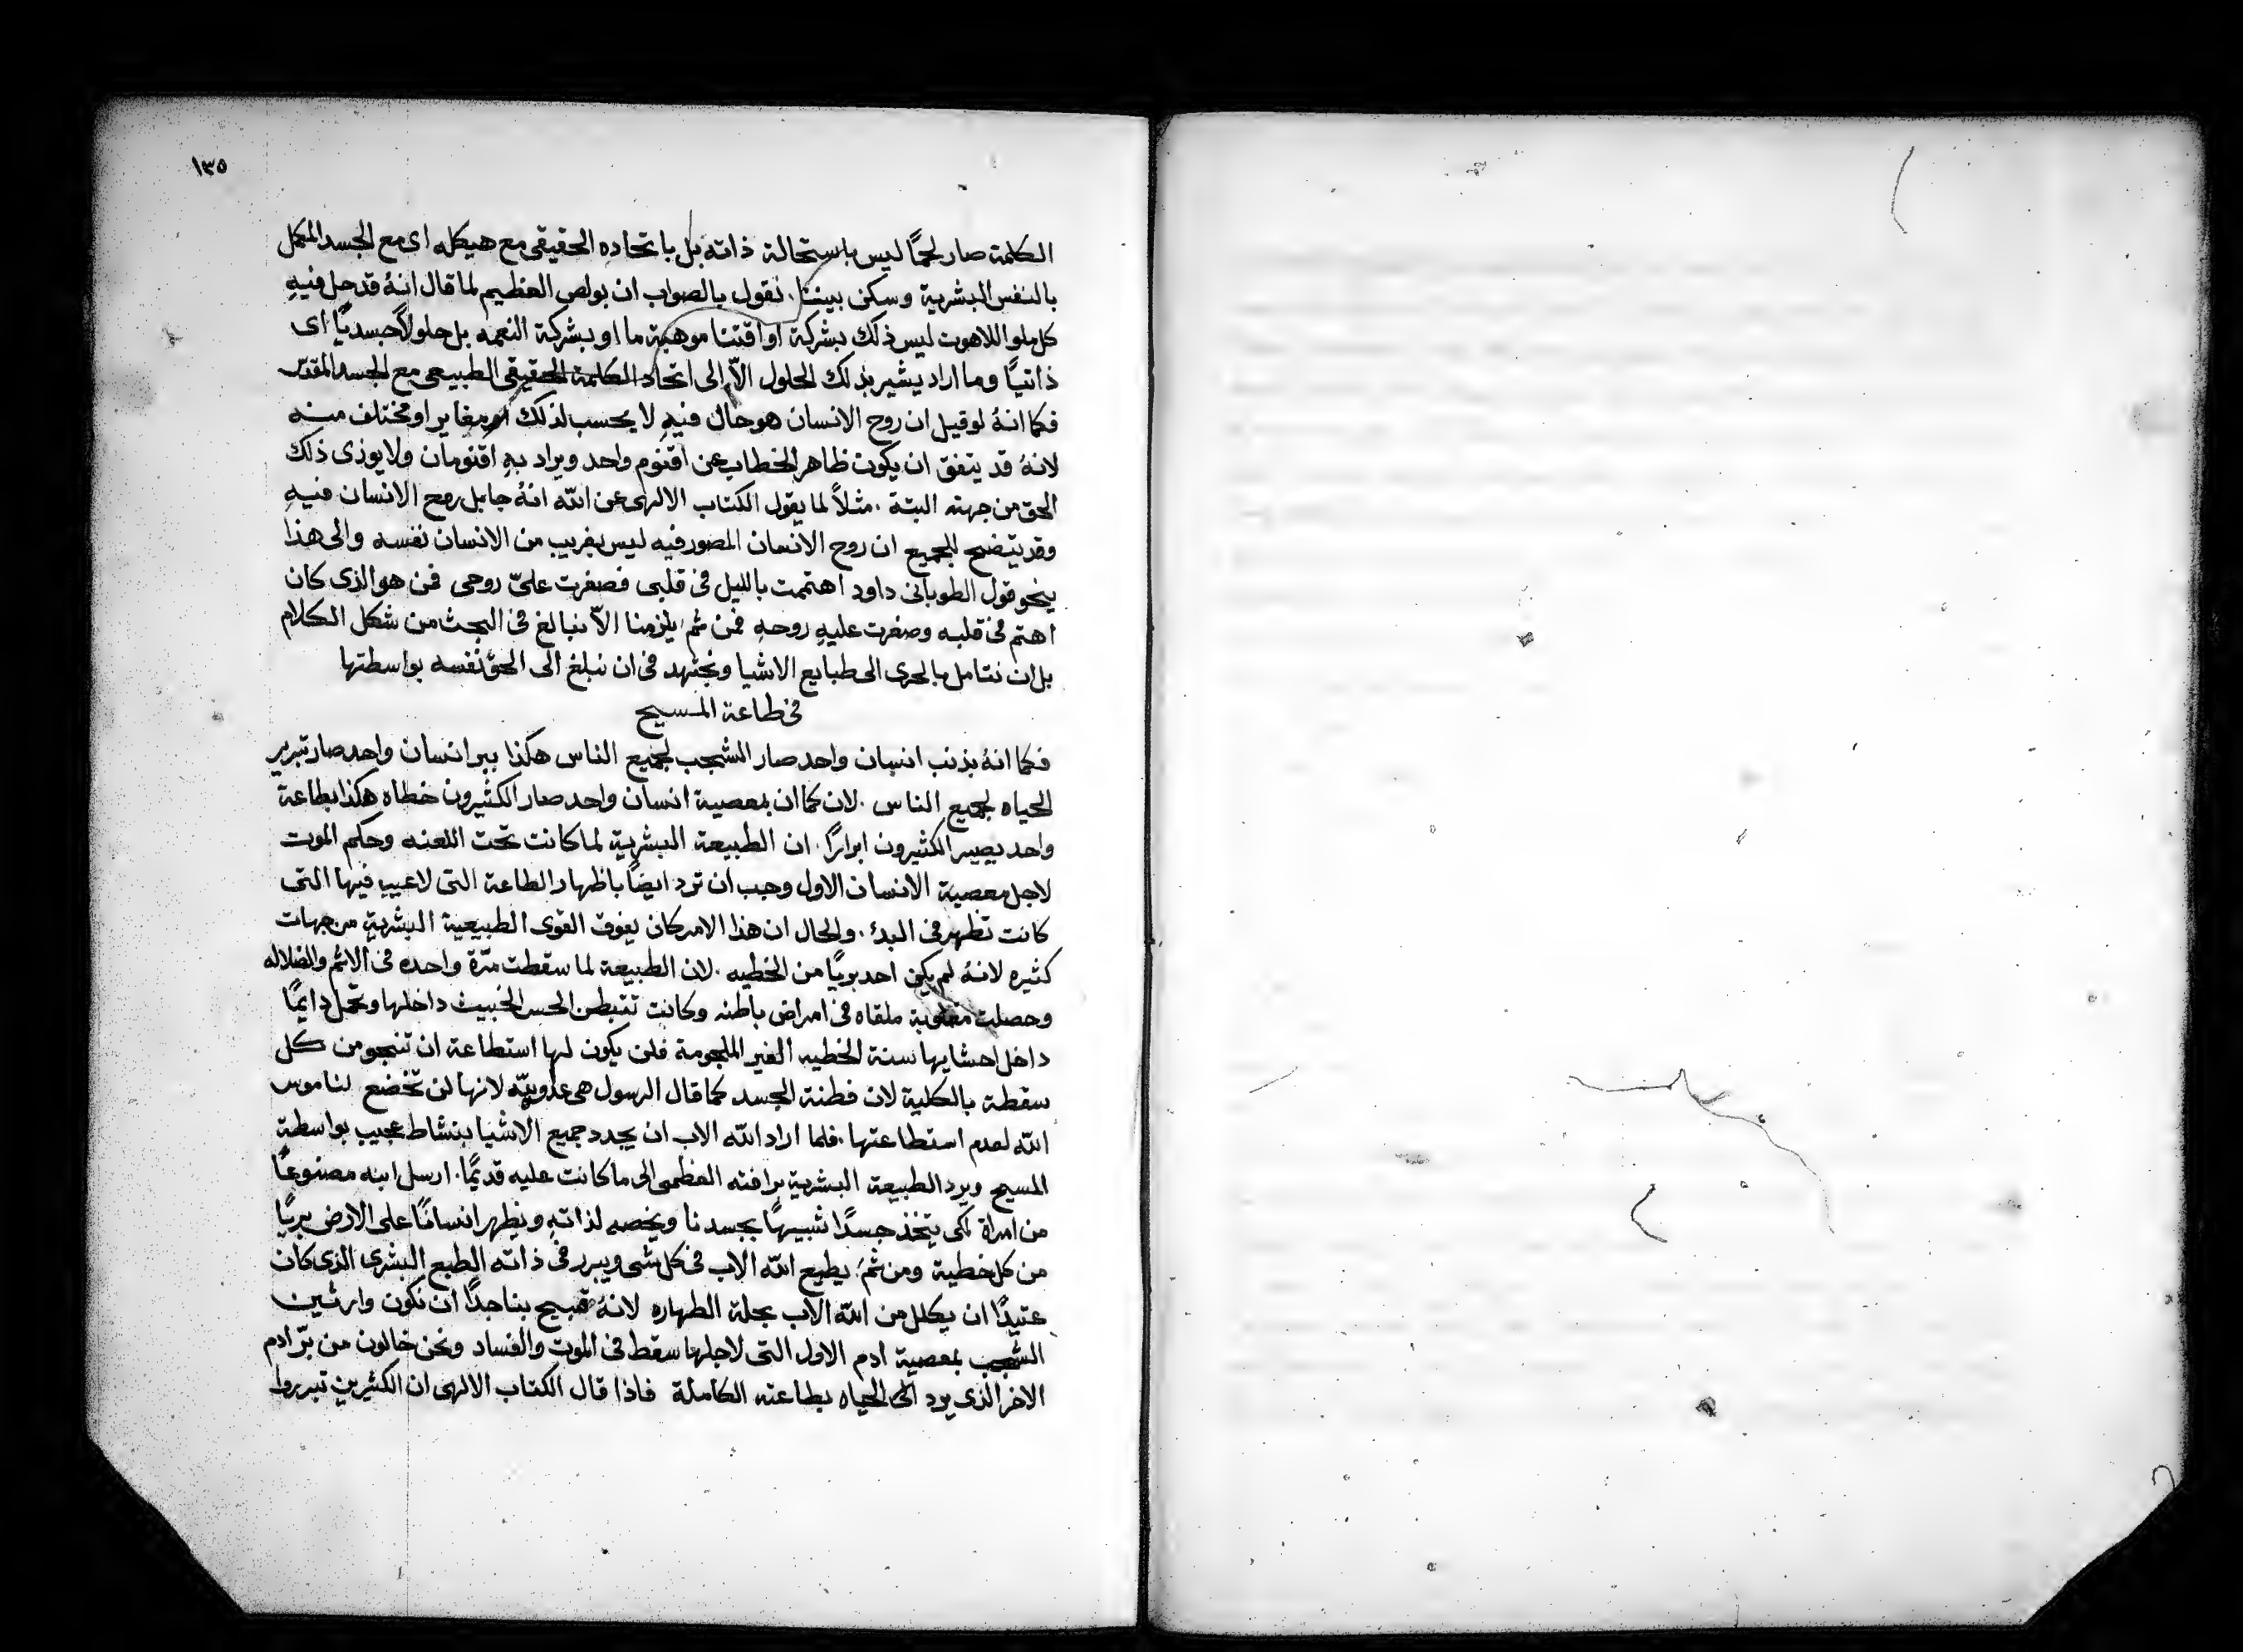 ١٣٥
الكلمة صار لحمًا ليس باستحالة ذاته بل باتحاده الحقيقى مع هيكله اى مع الجسد المكمل
بالنفس البشرية وسكن بيننا. نقول بالصواب ان بولص العظيم لما قال انهُ قد حل فيهِ
كل ملو اللاهوت ليس ذلك بشركة او اقتنا موهبة ما او بشركة النعمه بل حلولاً جسديًا اى
ذاتيًا وما اراد يشير بذلك الحلول الاّ الى اتحاد الكلمة الحقيقى الطبيعى مع الجسد المقدّس
فكما انهُ لو قيل ان روح الانسان هو حالّ فيهِ لا يحسب لذلك مغاير او مختلف منه
لانهُ قد يتفق ان يكون ظاهر الخطاب عن اقنوم واحد ويراد بهِ اقنومان ولا يوذى ذلك
الحق من جهته البتة . مثلاً لما يقول الكتاب الالهى عن الله انهُ جابل روح الانسان فيهِ
وقد يتضح للجميع ان روح الانسان المصور فيه ليس بغريب من الانسان نفسه والى هذا
ينحو قول الطوبانى داود اهتممت بالليل فى قلبى فصغرت علىّ روحى فمن هو الذى كان
اهتم فى قلبه وصغرت عليهِ روحهِ فمن ثم يلزمنا الاّ نبالغ فى البحث من شكل الكلام
بل ان نتامل بالحرى الى طبايع الاشيا ونجتهد فى ان نبلغ الى الحق نفسه بواسطتها
فى طاعة المسيح
فكما انهُ بذنب انسان واحد صار الشجب لجميع الناس هكذا ببر انسان واحد صار تبرير
الحياه لجميع الناس . لان كما ان بمعصية انسان واحد صار الكثيرون خطاه هكذا بطاعة
واحد يصير الكثيرون ابرارًا . ان الطبيعة البشرية لما كانت تحت اللعنه وحكم الموت
لاجل معصية الانسان الاول وجب ان ترد ايضًا باظهار الطاعة التى لا عيب فيها التى
كانت تظهر فى البدء . والحال ان هذا الامر كان يفوق القوى الطبيعية البشرية من جهات
كثيره لانهُ لم يكن احد بريًا من الخطيه . لان الطبيعة لما سقطت مرّة واحده فى الاثم والضلاله
وحصلت مغلوبة ملقاه فى امراض باطنه وكانت تتبطن الحس الخبيث داخلها وتحمل دايمًا
داخل احشايها سنة الخطيه الغير الملجومة فلن يكون لها استطاعة ان تنجو من كل
سقطة بالكلية لان فطنة الجسد كما قال الرسول هى عدو لله لانها لن تخضع لناموس
الله لعدم استطاعتها . فلما اراد الله الاب ان يجدد جميع الاشيا بنشاط عجيب بواسطة
المسيح ويرد الطبيعة البشرية برافته العظمى الى ما كانت عليه قديمًا . ارسل ابنه مصنوعًا
من امراة لكى يتخذ جسدًا شبيهًا بجسدنا ويخصه لذاتهِ ويظهر انسانًا على الارض بريًا
من كل خطية ومن ثم يطيع الله الاب فى كل شى ويبرر فى ذاته الطبع البشرى الذى كان
عتيدًا ان يكلل من الله الاب بحلة الطهاره لانهُ قبيح بنا جدًا ان نكون وارثين
الشجب بمعصية ادم الاول التى لاجلها سقط فى الموت والفساد ونحن خالون من برّ ادم
الاخر الذى يرد الى الحياه بطاعته الكاملة فاذا قال الكتاب الالهى ان الكثيرين تبرروا